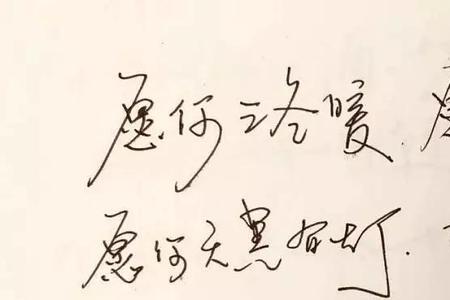 愿你三冬暖.
愿你天黑有灯.